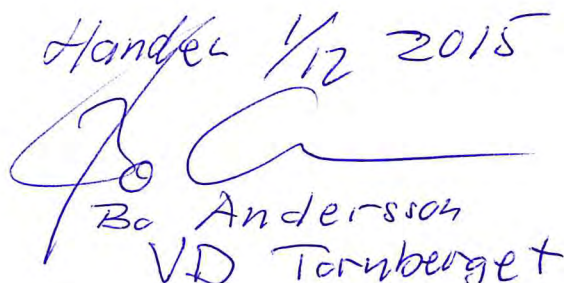 Handen 1/12 2015
Bo A
Bo Andersson
VD Tornberget